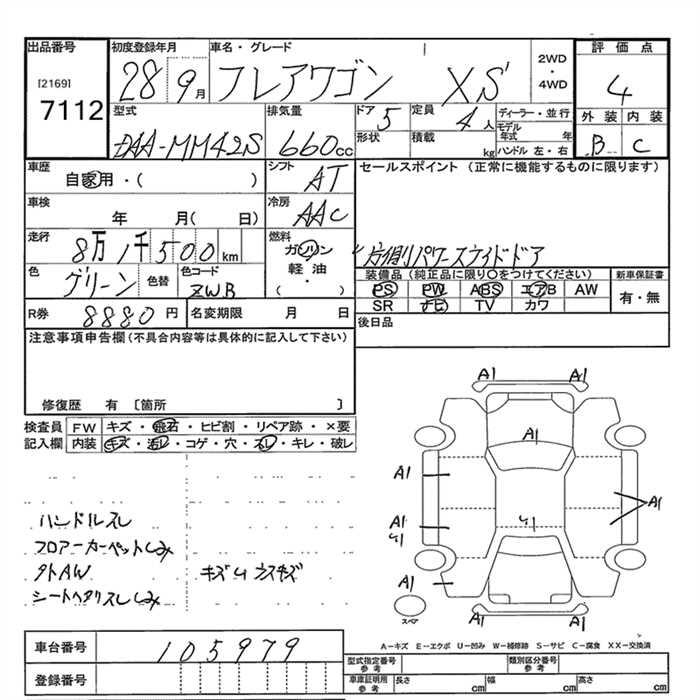 出品番号
[2169]
7112
初度登録年月
28 9月
車名・グレード
フレアワゴン XS
2WD
・
4WD
評価点
4
外装 内装
B C
型式
DAA-MM42S
排気量
660cc
ドア 5
定員 4人
形状
積載 kg
ディーラー・並行
モデル年式 年
ハンドル 左・右
車歴
自家用・( )
シフト
AT
セールスポイント (正常に機能するものに限ります)
片側パワースライドドア
車検
年 月( 日)
冷房
AAC
走行
8万1千500km
燃料
ガソリン
軽油
・( )
色
グリーン
色替
色コード
ZWB
装備品(純正品に限り○をつけてください)
PS PW ABS エアB AW
SR ナビ TV カワ
新車保証書
有・無
R券 8880円
名変期限 月 日
後日品
注意事項申告欄(不具合内容等は具体的に記入して下さい)
修復歴 有 〔箇所 〕
検査員記入欄
FW キズ・飛石・ヒビ割・リペア跡・×要
内装 キズ・汚レ・コゲ・穴・スレ・キレ・破レ
ハンドルスレ
フロアーカーペットしみ
タトAW
シートヘタリスレしみ
キズU
A1 A1
A1
A1
A1
A1
U1
U1
A1
A1 A1
スペア
A-キズ E-エクボ U-凹み W-補修跡 S-サビ C-腐食 XX-交換済
車台番号 105979
登録番号
型式指定番号 参考
類別区分番号 参考
車庫証明用 参考
長さ cm
幅 cm
高さ cm